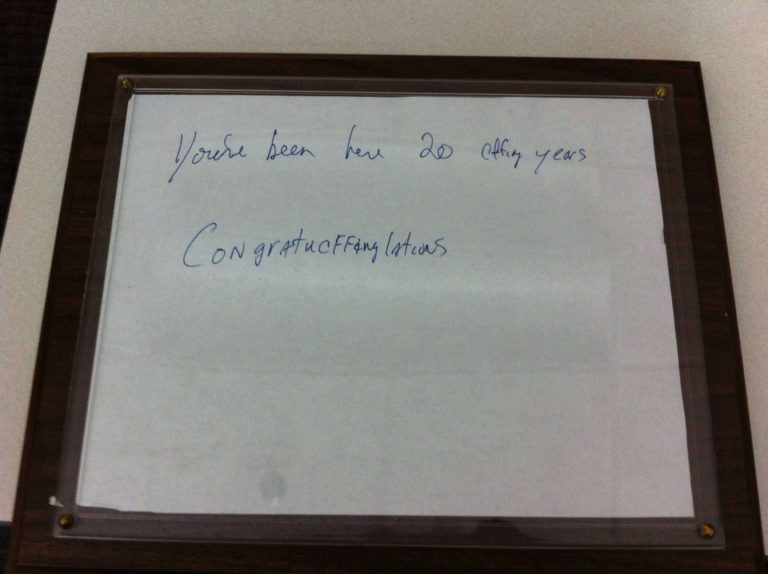 You've been here 20 effing years
Congratueffinglations